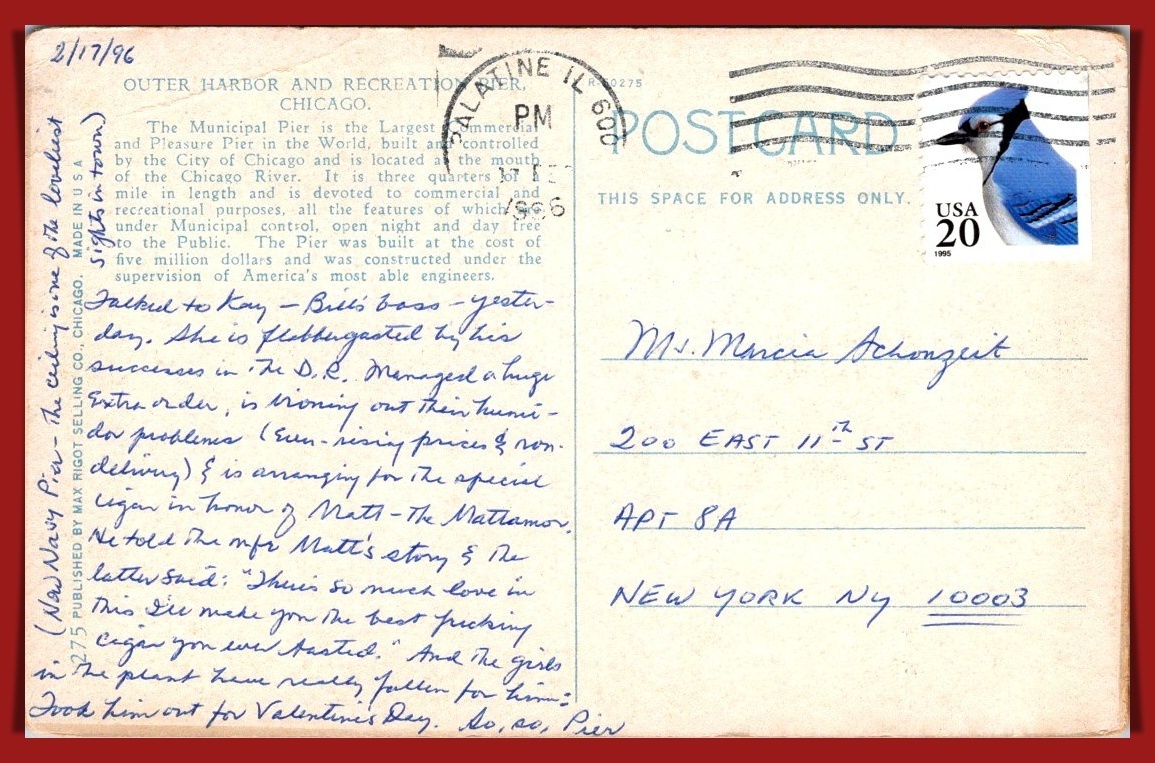 2/17/96
OUTER HARBOR AND RECREATION PIER,
CHICAGO.
The Municipal Pier is the Largest Commercial
and Pleasure Pier in the World, built and controlled
by the City of Chicago and is located at the mouth
of the Chicago River. It is three quarters of a
mile in length and is devoted to commercial and
recreational purposes, all the features of which are
under Municipal control, open night and day free
to the Public. The Pier was built at the cost of
five million dollars and was constructed under the
supervision of America's most able engineers.
(Now Navy Pier - the ceiling is one of the loveliest
sights in town)
275 PUBLISHED BY MAX RIGOT SELLING CO., CHICAGO. MADE IN U S A
Talked to Kay - Bill's boss - yester-
day. She is flabbergasted by his
successes in the D.R. Managed a huge
Extra order, is ironing out their humi-
dor problems (Ever-rising prices & non-
delivery) & is arranging for the special
cigar in honor of Matt - the Mattamor.
He told the mfr Matt's story & the
latter said: "There's so much love in
this I'll make you the best fucking
cigar you ever tasted." And the girls
in the plant have really fallen for him:
Took him out for Valentine's Day. So, so, Pier
PALATINE IL 600
PM
1996
R-60275
POSTCARD
THIS SPACE FOR ADDRESS ONLY.
USA
20
1995
Ms. Marcia Schonzeit
200 EAST 11th ST
APT 8A
NEW YORK NY 10003